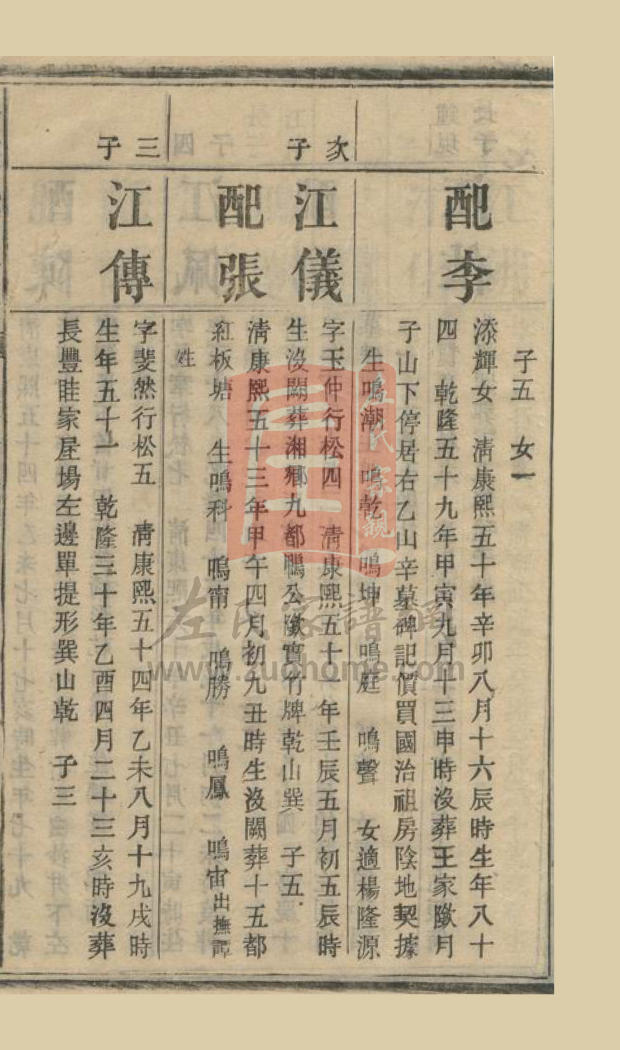 子五　女一
配李
添輝女　清康熙五十年辛卯八月十六辰時生年八十
四　乾隆五十九年甲寅九月十三申時沒葬王家㘰月
子山下停居右乙山辛墓碑記價買國治祖房陰地契據
生鳴潮　鳴乾　鳴坤　鳴庭　鳴聲　女適楊隆源
次子
江儀
字玉仲行松四　清康熙五十一年壬辰五月初五辰時
生沒闕葬湘鄉九都鵰公㘰寶竹牌乾山巽　子五
配張
清康熙五十三年甲午四月初九丑時生沒闕葬十五都
紅板塘　生鳴科　鳴甯　鳴勝　鳴鳳　鳴宙出撫譚
姓
三子
江傳
字斐然行松五　清康熙五十四年乙未八月十九戌時
生年五十一　乾隆三十年乙酉四月二十三亥時沒葬
長豐眭家屋場左邊單提形巽山乾　子三
左氏家譜網
www.zuohome.com